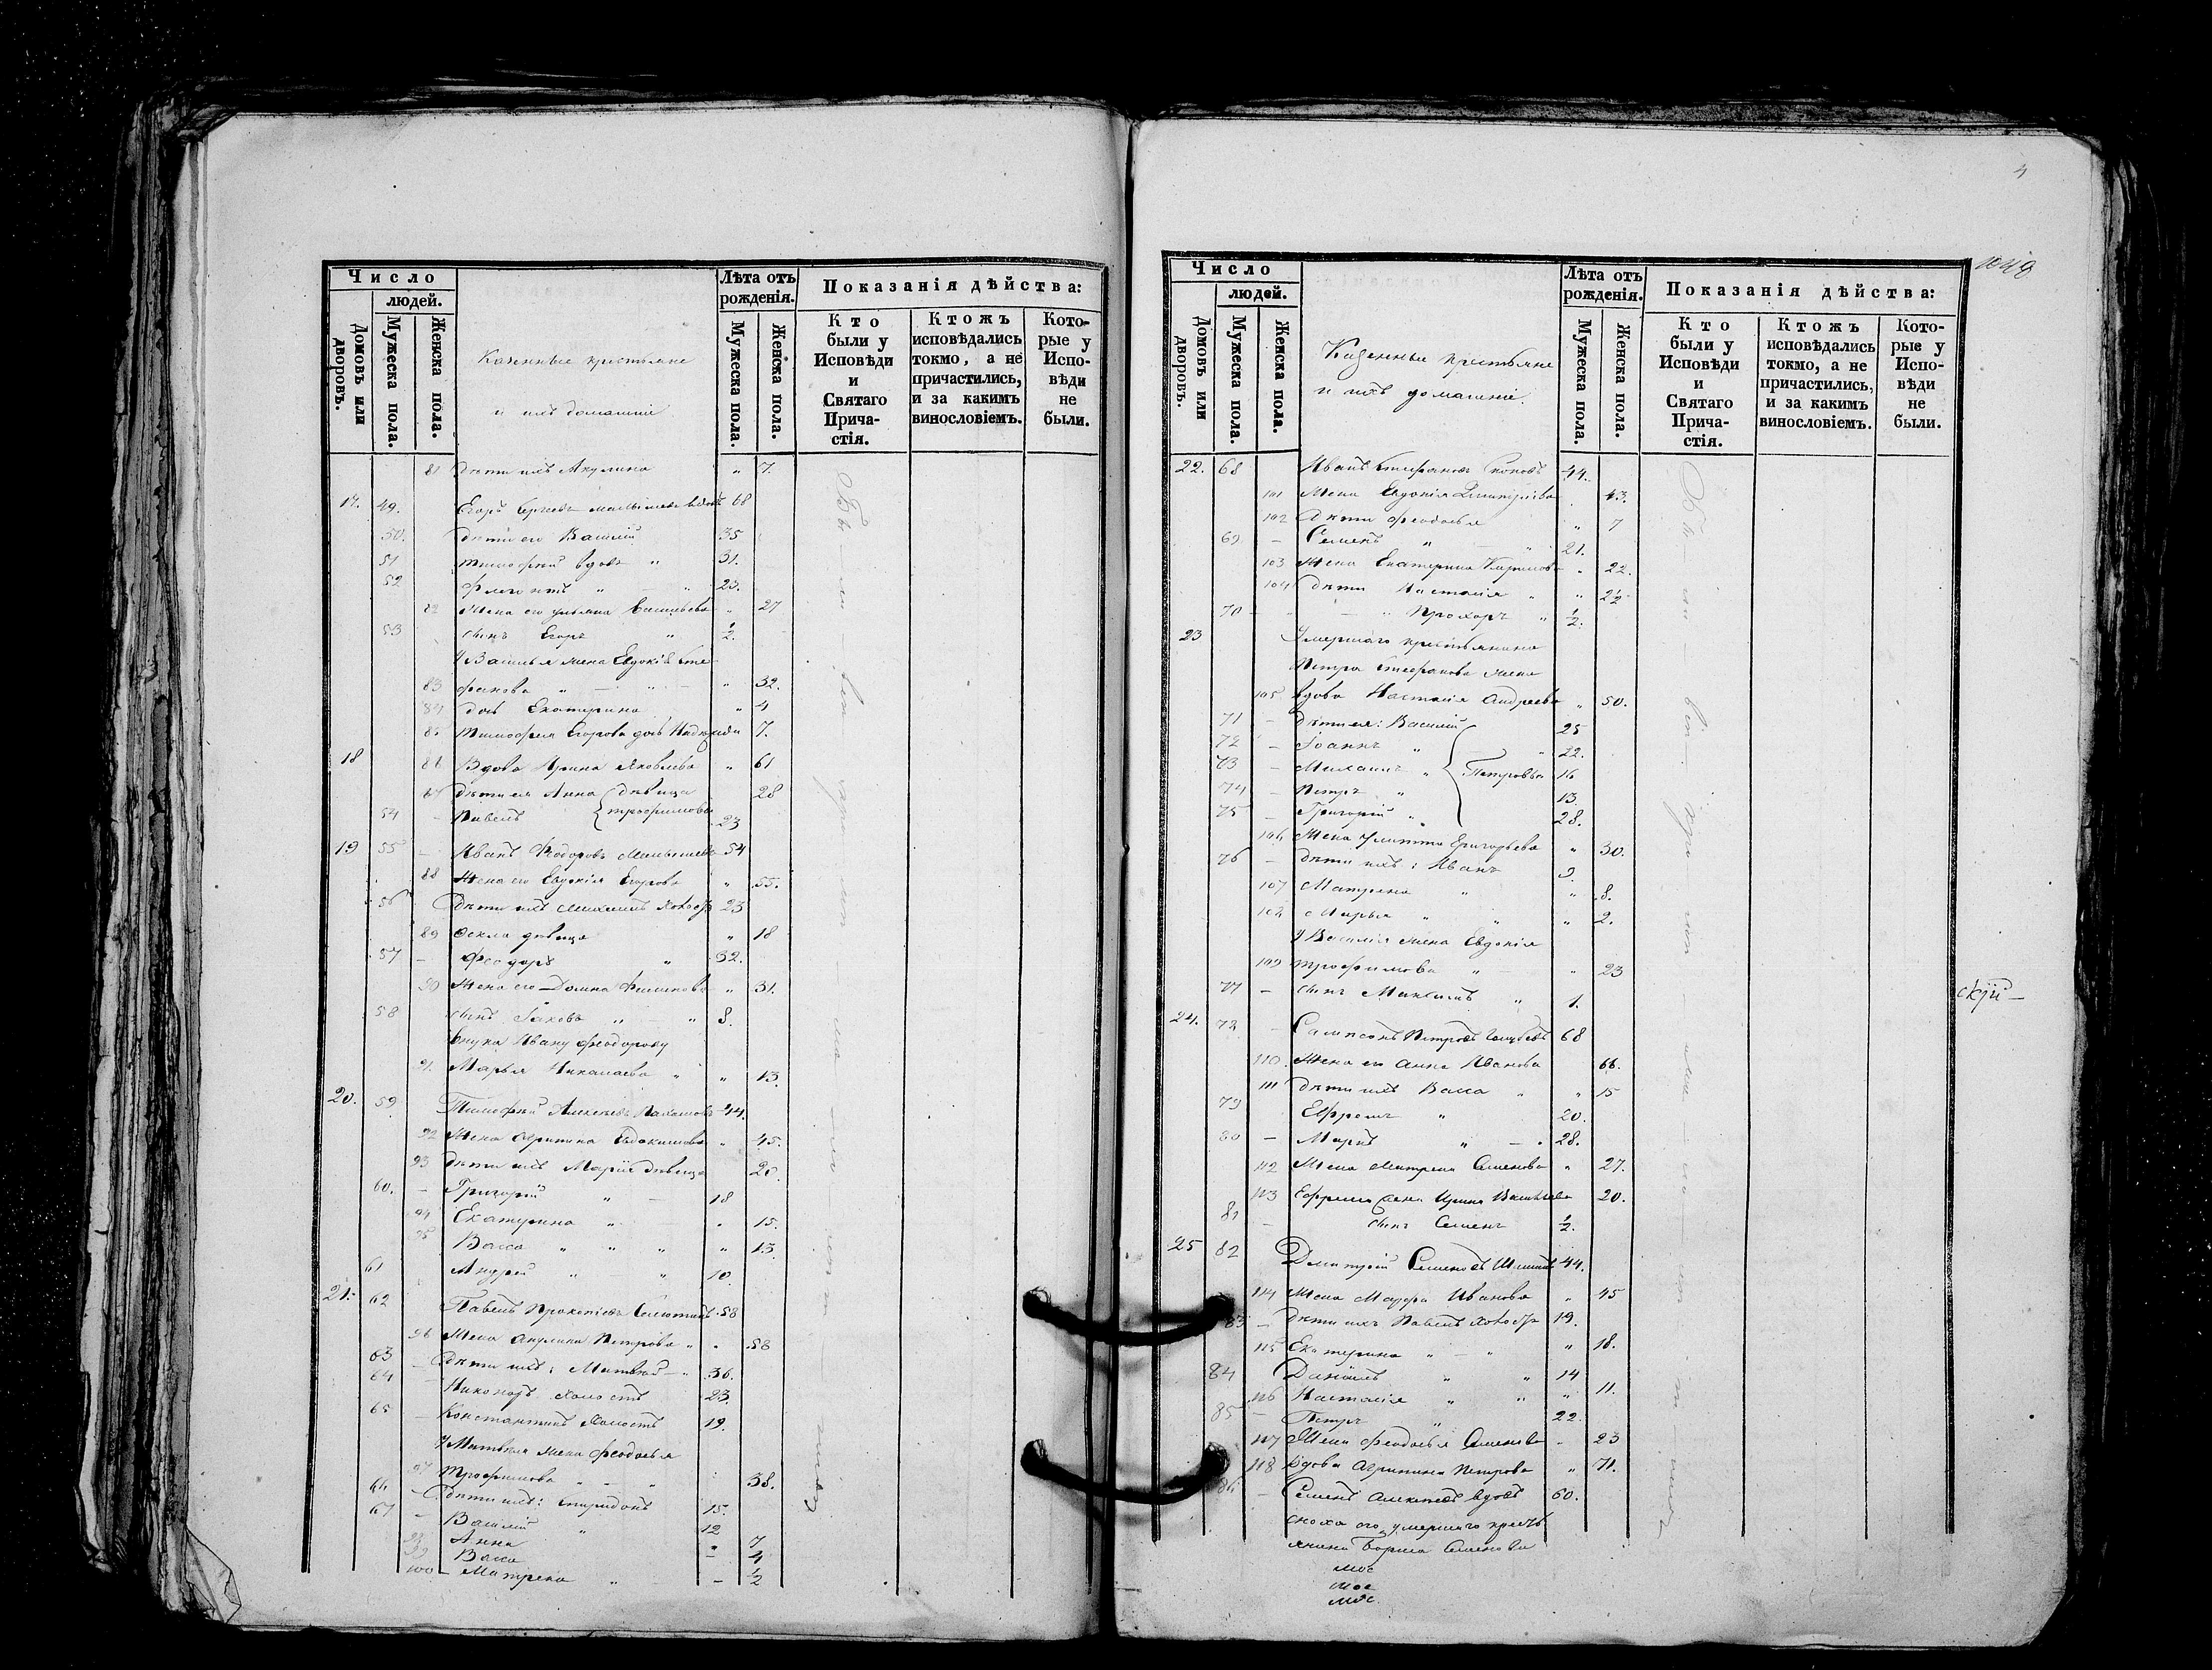 Число
людей.
Домовъ или дворовъ.
Мужеска пола.
Женска пола.
Казенные крестьяне
и ихъ домашніе
Лѣта отъ рожденія.
Мужеска пола.
Женска пола.
Показанія дѣйства:
Кто были у Исповѣди и Святаго Прича-стія.
Ктожъ исповѣдались токмо, а не причастились, и за какимъ винословіемъ.
Кото-рые у Испо-вѣди не были.
81 дѣти ихъ Акулина " 7.
17. 49. Егоръ Сергеевъ вдовъ 68
50. дѣти его Василій 35
51 Тимофей вдовъ " 31.
52 Флегонтъ " " 23.
82 Жена его Ульяна Васильева " 27
53 сынъ Егоръ " ½.
У Василья жена Евдокія Сте-
83 фанова " — " — " 32.
84 дочь Екатерина " 4
85 Тимофея Егорова дочь Надежда 7.
18 86 Вдова Ирина Яковлева " 61
87 дѣти ея Анна дѣвица 28
54 – Павелъ Трофимовы 23
19 55 – Иванъ Федоровъ 54
88 Жена его Евдокія Егорова " 55.
56 Дѣти ихъ Михаилъ холостъ 23
89 Фекла дѣвица " 18
57 – Феодоръ " 32.
90 Жена его Домна Филипова " 31.
58 сынъ Іаковъ " — " 8.
внука Ивану Феодорову
91. Марья Николаева " " 13.
20. 59. Тимофей Алексѣевъ 44.
92 Жена Агрипина Евдокимова " 45.
93 Дѣти ихъ Марія дѣвица 20.
60. – Григорій " — 18
94 Екатерина " " 15.
95 Васса " " " " 13.
61 Андрей " — " 10.
21. 62 Павелъ Прокопіевъ 58
96 Жена Акулина Петрова " " 58
63 – Дѣти ихъ: Матвей — " 36.
64 – Никоноръ холостъ 23.
65 – Константинъ холостъ 19.
У Матвея жена Феодосья
97 Трофимова " — " 38.
66 – Дѣти ихъ: Спиридонъ 15.
67 – Василій " 12
98 Анна " 7
99 Васса – 4
100 – Матрена " – ½
4
Число
людей.
Домовъ или дворовъ.
Мужеска пола.
Женска пола.
Казенные крестьяне
и ихъ домашніе.
Лѣта отъ рожденія.
Мужеска пола.
Женска пола.
Показанія дѣйства:
Кто были у Исповѣди и Святаго Прича-стія.
Ктожъ исповѣдались токмо, а не причастились, и за какимъ винословіемъ.
Кото-рые у Испо-вѣди не были.
22. 68 Иванъ Стефановъ 44.
101 Жена Евдокія Димитріева 43.
102 Дѣти Феодосья " 7
69 – Семенъ " — " 21.
103 Жена Екатерина Кирилова " 22.
104 Дѣти Настасія " " 2½
70 – – " Прохоръ " ½.
23 Умершаго крестьянина
Петра Стефанова жена
105 вдова Настасія Андреева " 50.
71 – Дѣти ея: Василій 25
72 – Іоаннъ " — " 22.
73 – Михаилъ " Петровы 16
74 – Петръ " 13.
75 – Григорій " 28.
106 Жена Улитта Григорьева " 30.
76 – Дѣти ихъ: Иванъ 9.
107 Матрена " " 8.
108 Марья " " " 2.
У Василія жена Евдокія
109 Трофимова " — " 23
77 – сынъ Максимъ " 1.
24. 78 – Сампсонъ Петровъ 68
110. Жена его Анна Иванова 66.
111 Дѣти ихъ Васса " " 15
79 Ефремъ " 20.
80 – Маркъ " — " 28.
112 Жена Матрена Семенова " 27.
113 Ефрема жена Ирина Васильева 20.
81 – сынъ Семенъ ½.
25 82 Димитрій Семеновъ 44.
114 Жена Марфа Иванова " 45
83 – Дѣти ихъ Павелъ холостъ 19.
115 Екатерина " — " " 18.
84 Даніилъ " " 14
116 Настасія " " " 11.
85 – Петръ " 22.
117 Жена Феодосья Семенова " 23
118 Вдова Агрипина Петрова " 71.
86 – Семенъ Алексѣевъ вдовъ 60.
сноха его умершаго кресть
янина Бориса Семенова
скій —